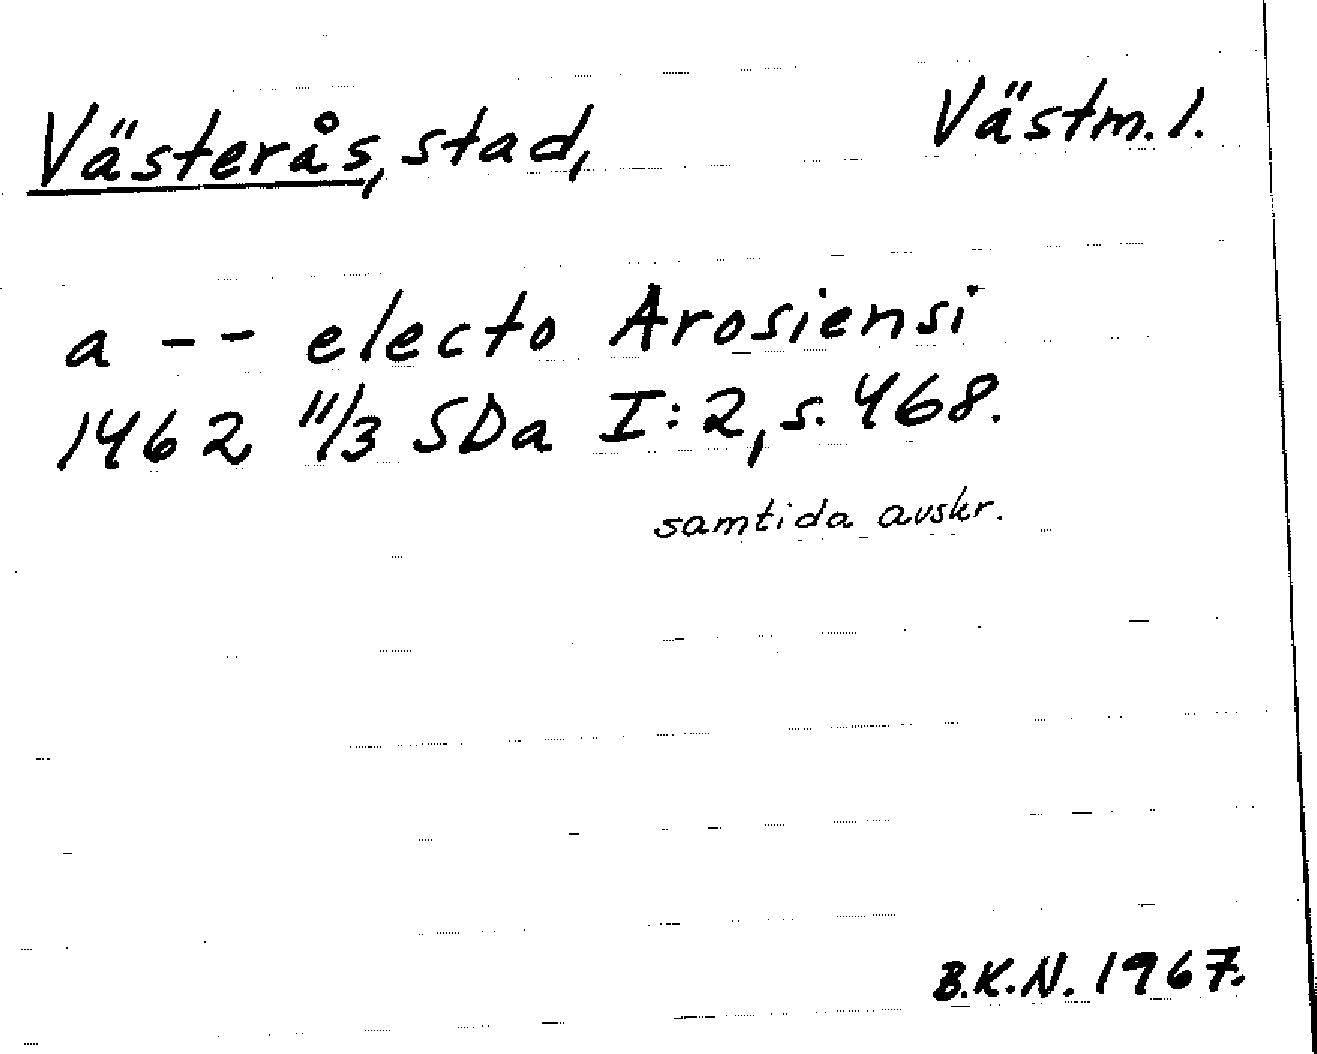 Västerås, stad, Västm. l.
a -- electo Arosiensi
1462 11/3 SDa I:2, s. 468.
samtida avskr.
B.K.N. 1967.